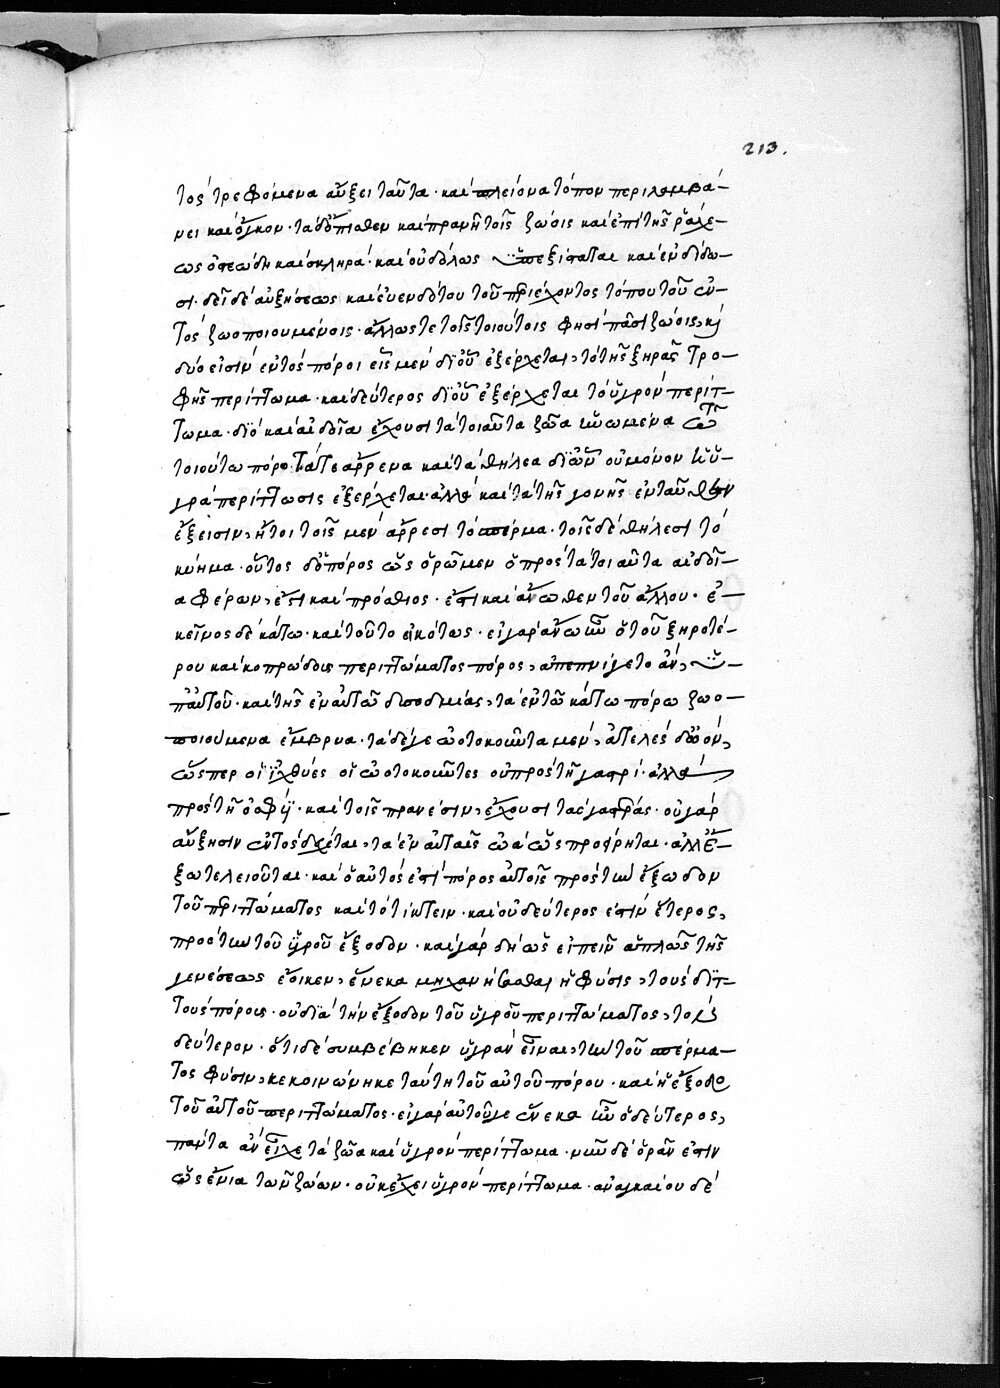 213.
τὸς τρεφόμενα αὔξει ταῦτα· καὶ πλείονα τόπον περιλαμβά-
νει καὶ ὄγκον· τὰ δ' ὄπισθεν καὶ πρανῆ τοῖς ζώοις καὶ ἐπὶ τῆς ῥάχε-
ως ὀστεώδη καὶ σκληρά· καὶ οὐδ' ὅλως ὑπεξίσταται καὶ ἐνδίδω-
σι· δεῖ δὲ αὐξήσεως καὶ εὐενδότου τοῦ περιέχοντος τόπου τοῦ ἐν-
τὸς ζωοποιουμένοις· ἄλλως τε τοῖς τοιούτοις φησὶ πᾶσι ζώοις, κ
δύο εἰσὶν ἐντὸς πόροι εἷς μὲν δι' οὗ ἐξέρχεται, τὸ τῆς ξηρᾶς τρο-
φῆς περίττωμα· καὶ δεύτερος δι' οὗ ἐξέρχεται τὸ ὑγρὸν περίτ-
τωμα· διὸ καὶ αἰδοῖα ἔχουσι τὰ τοιαῦτα ζῶα
τοιούτω πόρω· τά τε ἄρρενα καὶ τὰ θήλεα δι' ὧν οὐ μόνον ἡ ὑ-
γρὰ περίττωσις ἐξέρχεται· ἀλλὰ καὶ τὰ τῆς γονῆς ἐνταῦθεν
ἔξεισιν, ἤτοι τοῖς μὲν ἄρρεσι τὸ σπέρμα· τοῖς δὲ θήλεσι τὸ
κύημα· οὗτος δ' ὁ πόρος ὡς ὁρῶμεν ὁ πρὸς τὰ τοιαῦτα αἰδοῖ-
α φέρων, ἐστὶ καὶ πρόσθιος· ἔστι καὶ ἄνωθεν τοῦ ἄλλου· ἐ-
κεῖνος δὲ κάτω· καὶ τοῦτο εἰκότως· εἰ γὰρ ἄνω ἦν ὁ τοῦ ξηροτέ-
ρου καὶ κοπρώδους περιττώματος πόρος, ἀπεπνίγετο ἂν, ὑ-
π' αὐτοῦ· καὶ τῆς ἐν αὐτῶ δυσοδμίας, τὰ ἐν τῶ κάτω πόρω ζωο-
ποιούμενα ἔμβρυα· τὰ δέ γε ὠοτοκοῦντα μὲν, ἀτελὲς δ' ὠὸν,
ὥσπερ οἱ ἰχθύες οἱ ὠοτοκοῦντες οὐ πρὸς τῇ γαστρὶ· ἀλλὰ
πρὸς τῇ ὀσφύϊ· καὶ τοῖς πρανέσιν, ἔχουσι τὰς γαστρὰς· οὐ γὰρ
αὔξησιν ἐντὸς δέχεται, τὰ ἐν αὐταῖς ὠὰ ὡς προείρηται· ἀλλ' ἔ-
ξω τελειοῦται· καὶ ὁ αὐτὸς ἐστὶ πόρος αὐτοῖς πρὸς τὴν ἔξωδον
τοῦ περιττώματος καὶ τὸ τίκτειν· καὶ οὐ δεύτερος ἐστὶν ἕτερος,
πρὸς τὴν τοῦ ὑγροῦ ἔξοδον· καὶ γὰρ δὴ ὡς εἰπεῖν ἁπλῶς τῆς
γενέσεως ἔοικεν, ἕνεκα μηχανήσασθαι ἡ φύσις, τοὺς διτ-
τοὺς πόρους· οὐ διὰ τὴν ἔξοδον τοῦ ὑγροῦ περιττώματος, τοῦ
δεύτερον· ὅτι δὲ συμβέβηκεν ὑγρὰν εἶναι, τὴν τοῦ σπέρμα-
τος φύσιν, κεκοινώνηκε ταύτη τοῦ αὐτοῦ πόρου· καὶ ἡ ἔξοδο
τοῦ αὐτοῦ περιττώματος· εἰ γὰρ αὐτοῦ γε ἕνεκα ἦν ὁ δεύτερος,
πάντα ἂν εἶχε τὰ ζῶα καὶ ὑγρὸν περίττωμα· νῦν δὲ ὁρᾶν ἐστιν
ὡς ἔνια τῶν ζώων· οὐκ ἔχει ὑγρὸν περίττωμα· ἀναγκαίου δὲ